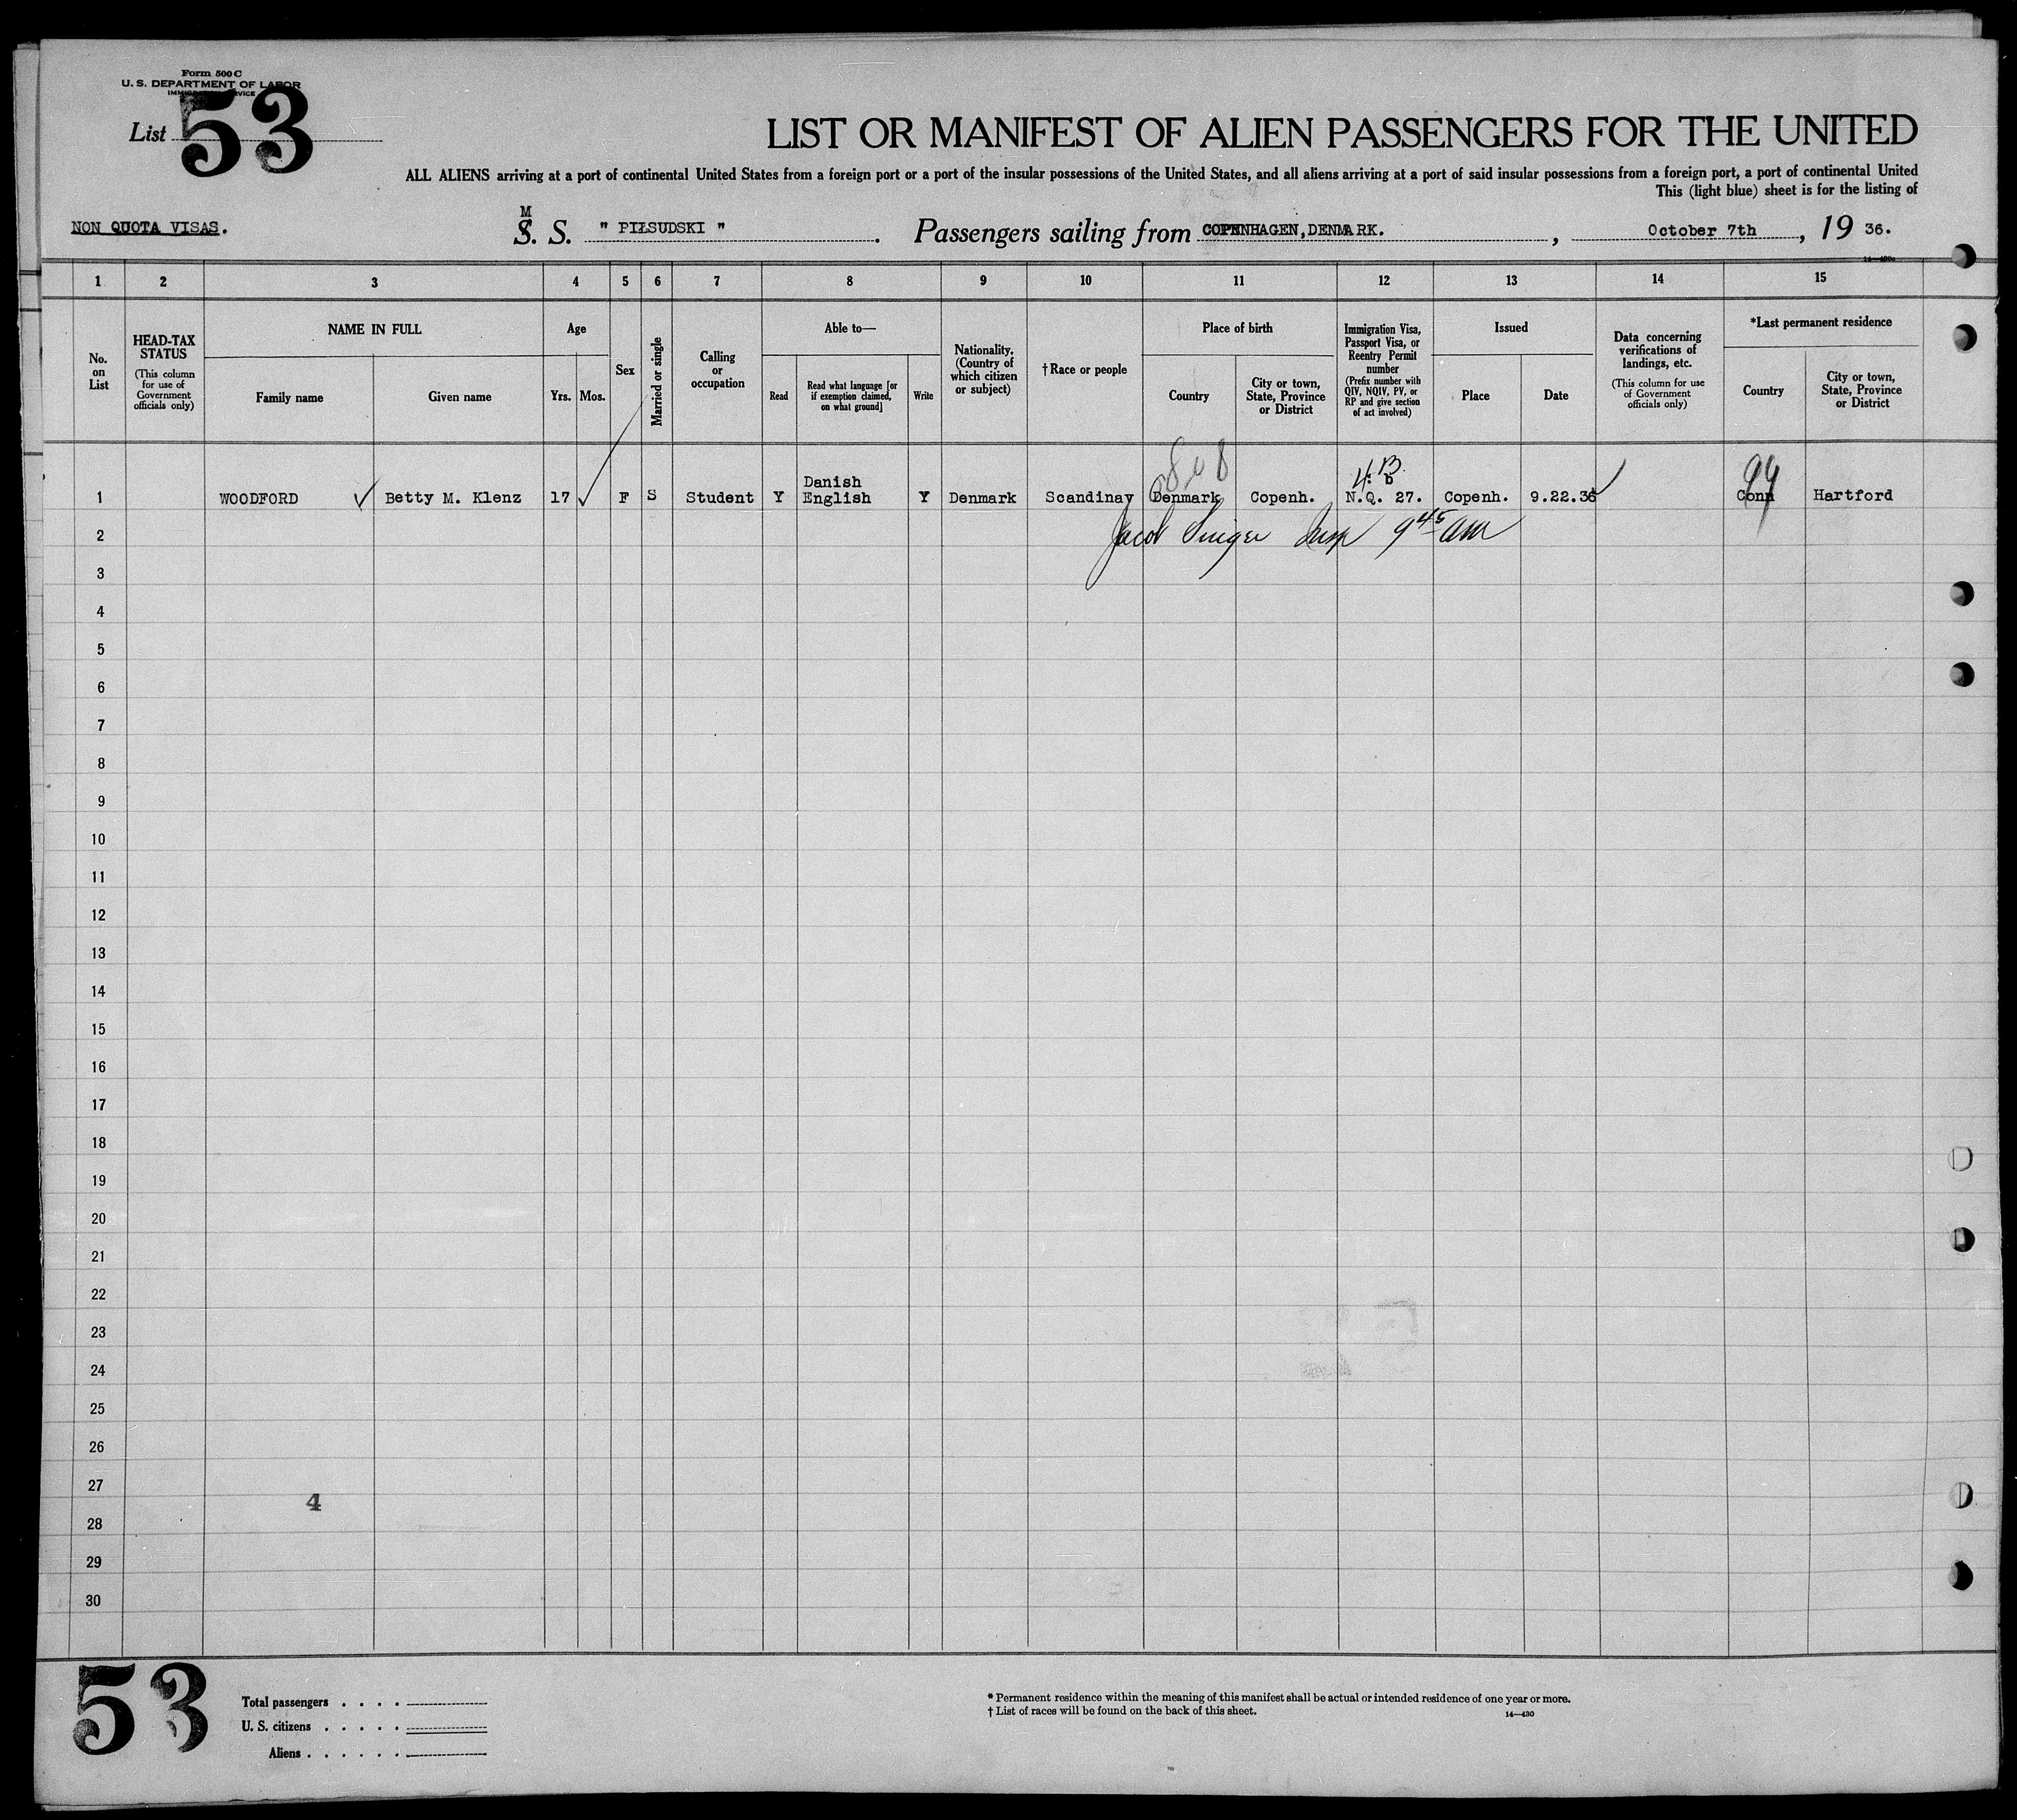 Form 500 C
U. S. DEPARTMENT OF LABOR
IMMIGRATION SERVICE
List 53
LIST OR MANIFEST OF ALIEN PASSENGERS FOR THE UNITED
ALL ALIENS arriving at a port of continental United States from a foreign port or a port of the insular possessions of the United States, and all aliens arriving at a port of said insular possessions from a foreign port, a port of continental United
This (light blue) sheet is for the listing of
NON QUOTA VISAS.
M
S. S. " PIŁSUDSKI " . Passengers sailing from COPENHAGEN,DENMARK. , October 7th , 19 36.
1 2 3 4 5 6 7 8 9 10 11 12 13 14 15
No. on List
HEAD-TAX STATUS
(This column for use of Government officials only)
NAME IN FULL
Family name
Given name
Age
Yrs. Mos.
Sex
Married or single
Calling or occupation
Able to—
Read
Read what language [or if exemption claimed, on what ground]
Write
Nationality. (Country of which citizen or subject)
†Race or people
Place of birth
Country
City or town, State, Province or District
Immigration Visa, Passport Visa, or Reentry Permit number
(Prefix number with QIV, NQIV, PV, or RP and give section of act involved)
Issued
Place
Date
Data concerning verifications of landings, etc.
(This column for use of Government officials only)
*Last permanent residence
Country
City or town, State, Province or District
4 B.
99
1 WOODFORD Betty M. Klenz 17 F S Student Y Danish English Y Denmark Scandinav Denmark Copenh. N.Q. 27. Copenh. 9.22.36 Conn Hartford
2 Jacob Singer Insp 9 45 am
3
4
5
6
7
8
9
10
11
12
13
14
15
16
17
18
19
20
21
22
23
24
25
26
27
4
28
29
30
53
Total passengers . . . .
U. S. citizens . . . . .
Aliens . . . . . .
* Permanent residence within the meaning of this manifest shall be actual or intended residence of one year or more.
† List of races will be found on the back of this sheet.
14—430